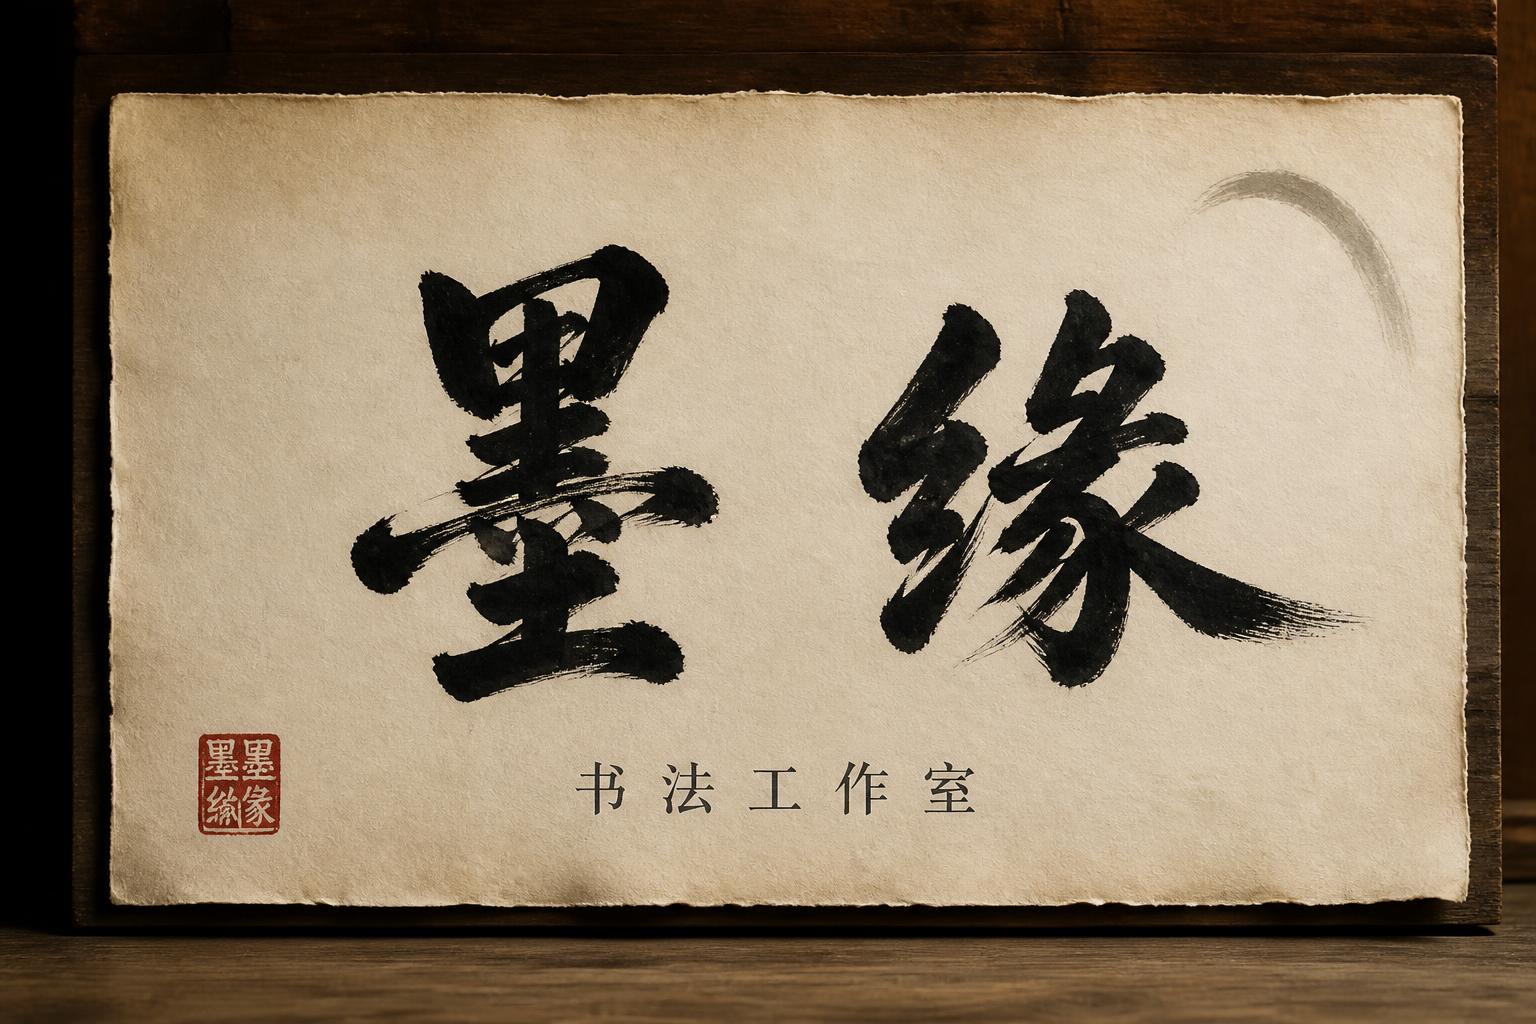 墨缘
书法工作室
墨墨